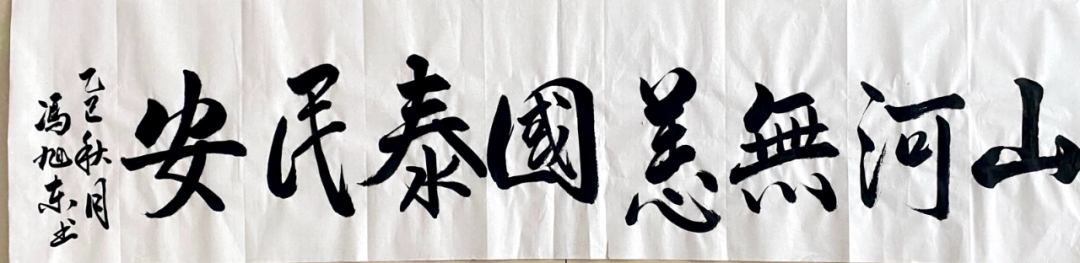 山河無恙國泰民安
乙巳秋月
馮旭东书